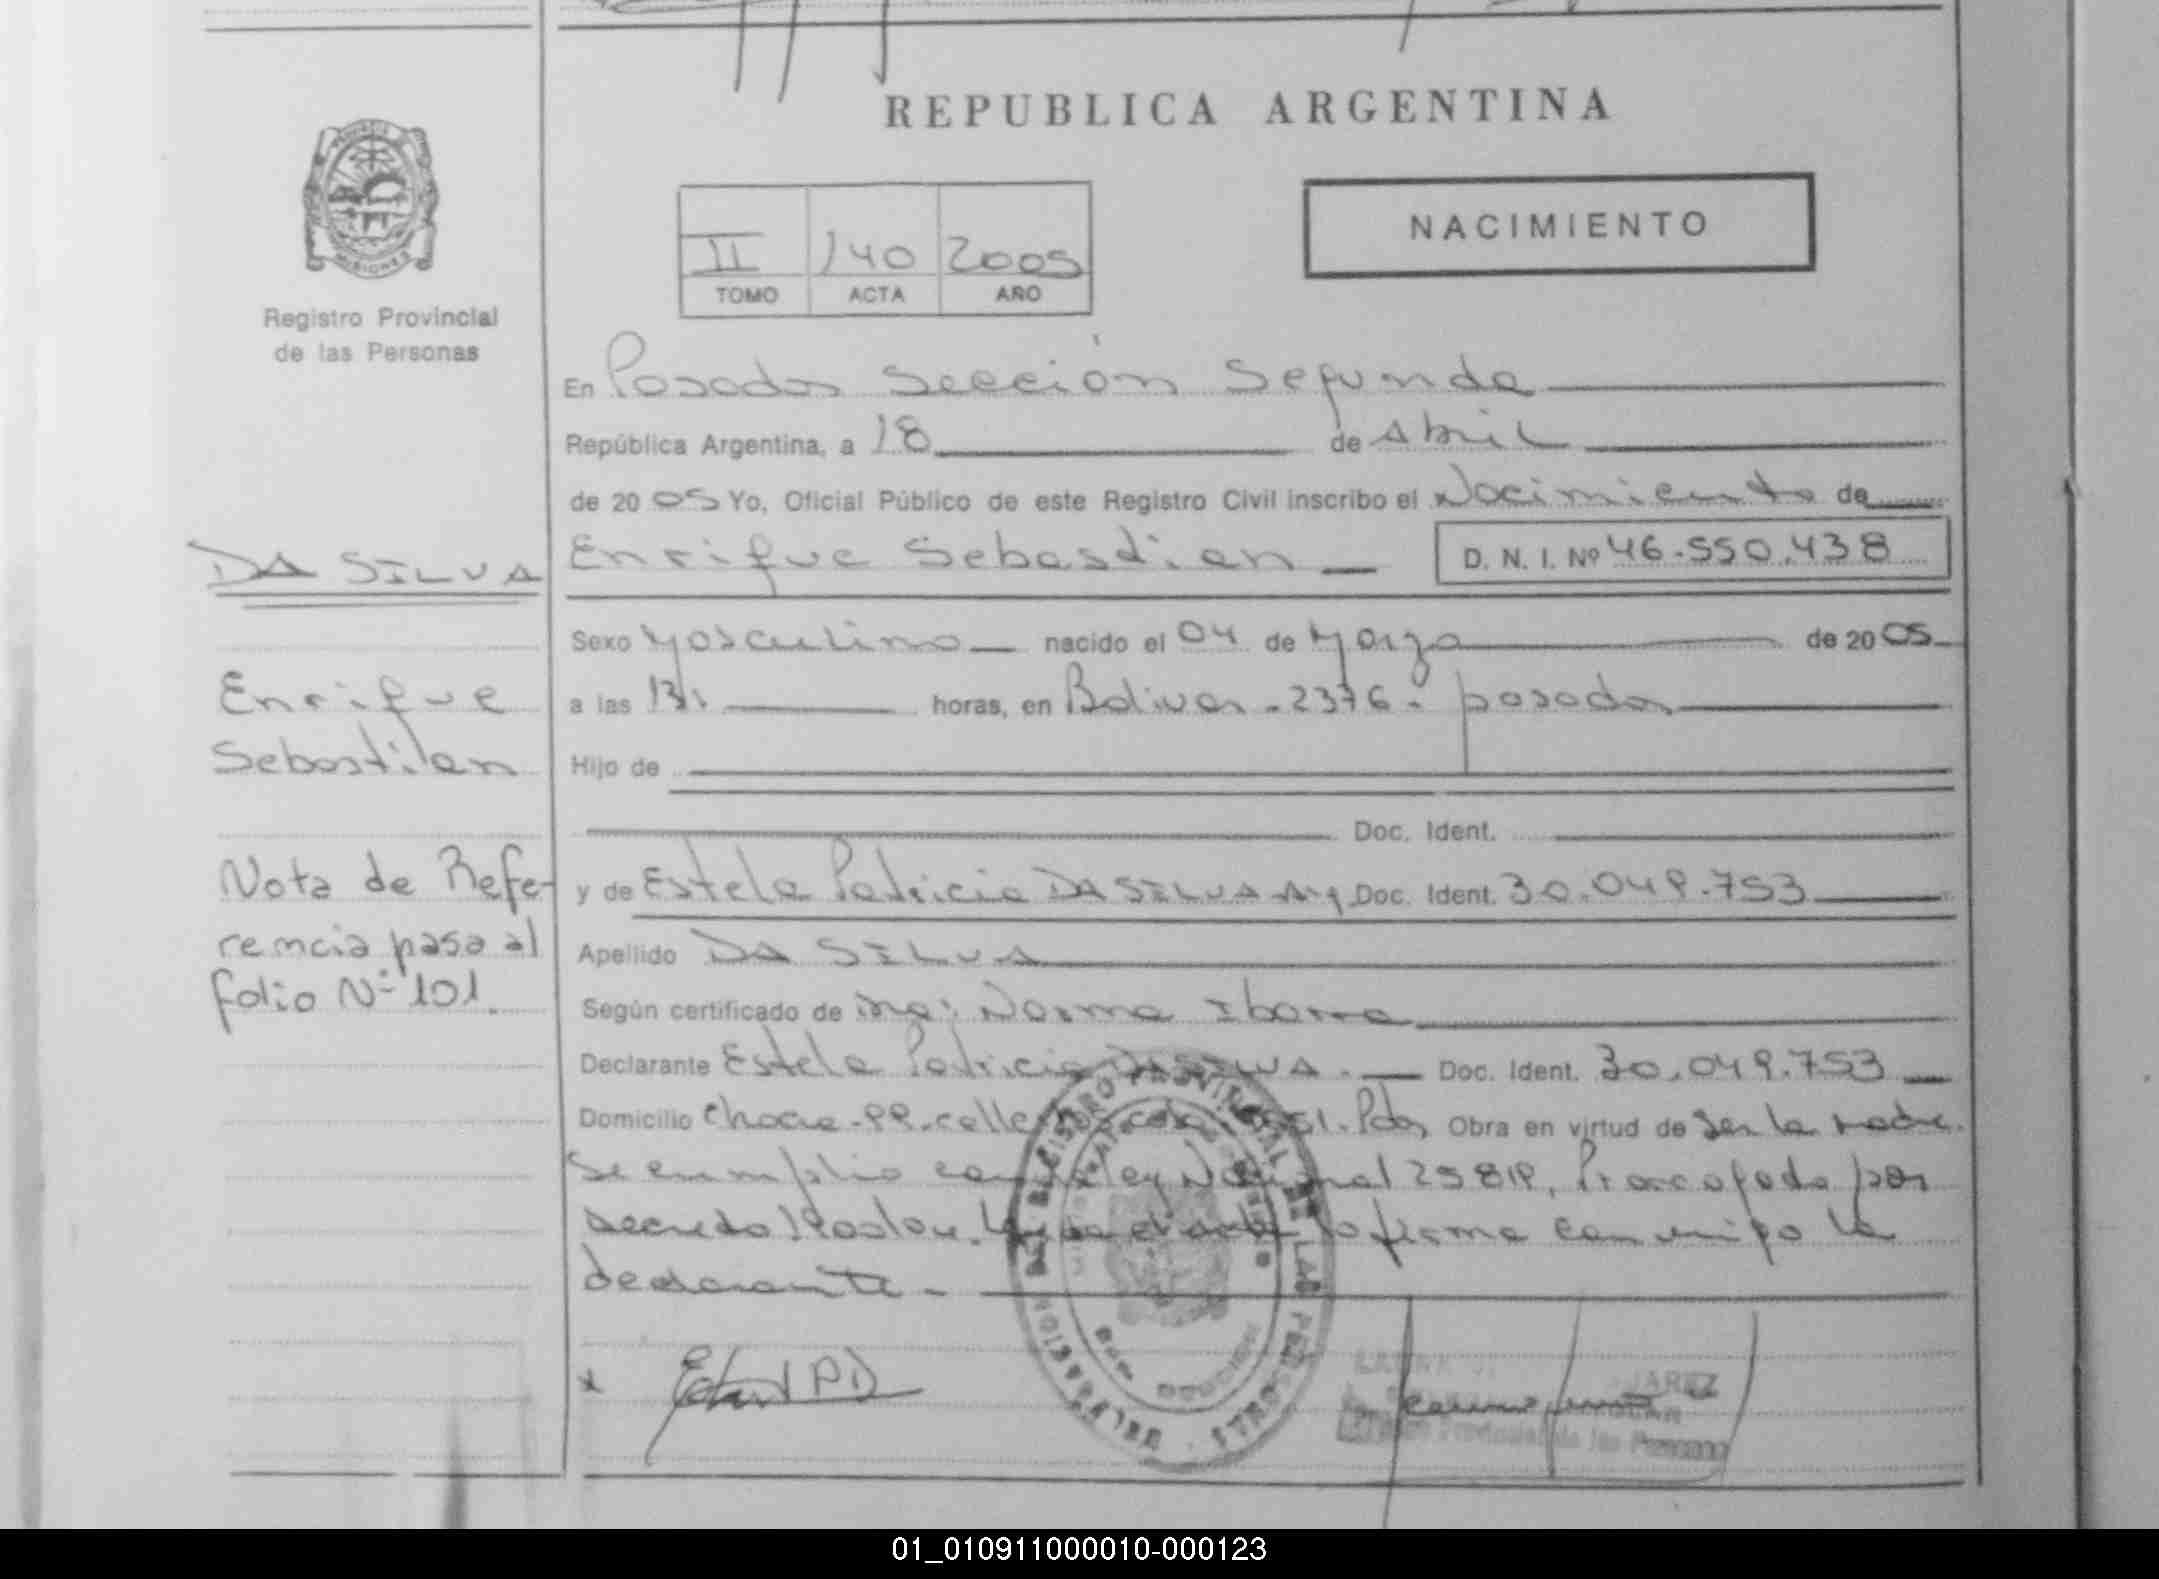 REPUBLICA ARGENTINA
NACIMIENTO
II 140 2005
TOMO ACTA AÑO
PROVINCIA DE MISIONES
Registro Provincial
de las Personas
En Posadas Sección Segunda
República Argentina, a 18 de Abril
de 2005 Yo, Oficial Público de este Registro Civil inscribo el Nacimiento de
DA SILVA Enrique Sebastian D. N. I. Nº 46.550.438
Sexo Masculino nacido el 04 de Marzo de 2005
Enrique
a las 13, horas, en Bolivar - 2376 - posadas
Sebastian
Hijo de
Doc. Ident.
Nota de Refe-
y de Estela Patricia DA SILVA Arg Doc. Ident. 30.049.753
rencia pasa al
Apellido DA SILVA
folio Nº 101.
Según certificado de Norma Ibarra
Declarante Estela Patricia DA SILVA. Doc. Ident. 30.049.753
Domicilio Obra en virtud de Ser la madre.
Se cumplio con Ley Nacional Prorrogada por
Decreto Leida el acta la firma conmigo la
declarante -
REGISTRO PROVINCIAL DE LAS PERSONAS
Provincial de las Personas
01_010911000010-000123